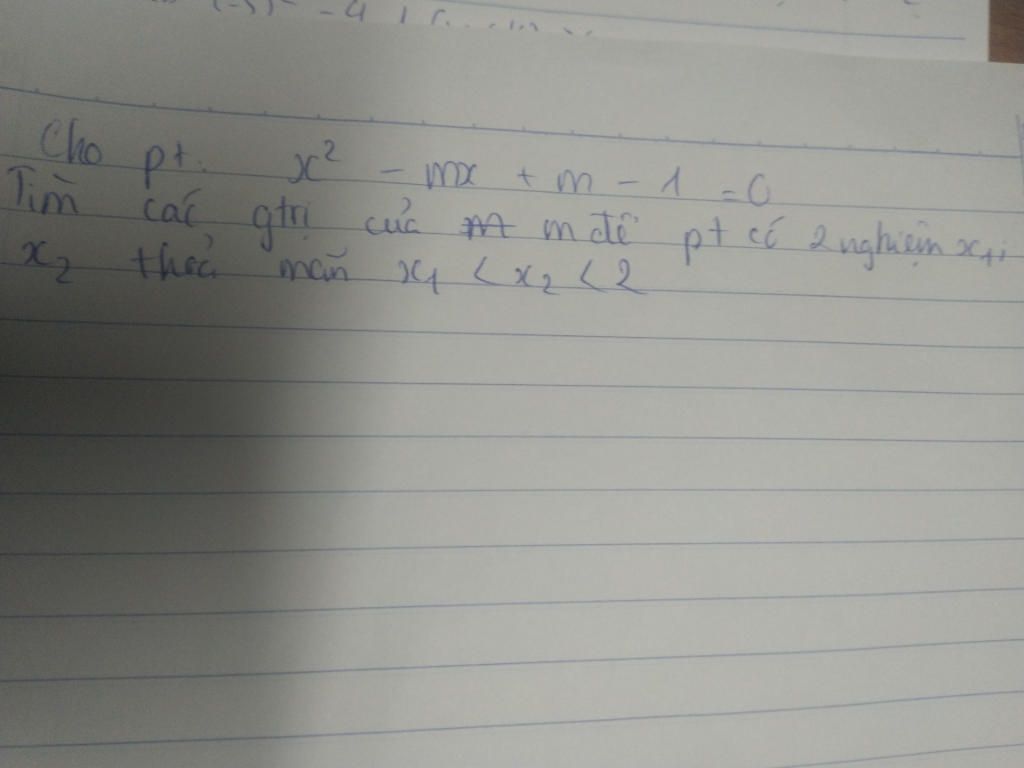 Cho pt: x² - mx + m - 1 = 0
Tìm các gtrị của m để pt có 2 nghiệm x₁;
x₂ thỏa mãn x₁ < x₂ < 2